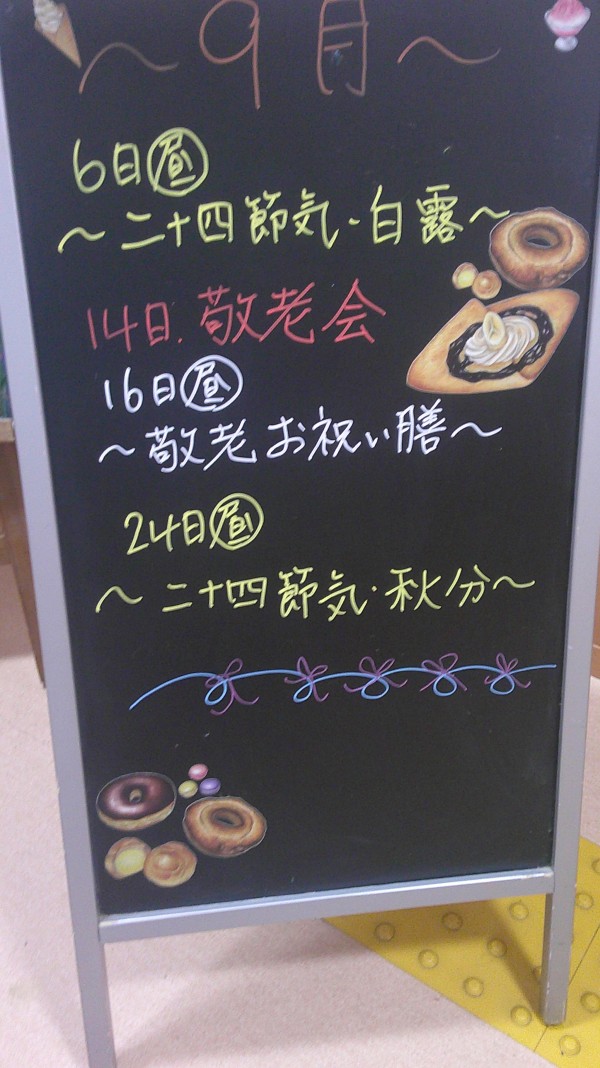 ~9月~
6日㊐昼
~二十四節気・白露~
14日.敬老会
16日昼
~敬老お祝い膳~
24日昼
~二十四節気・秋分~